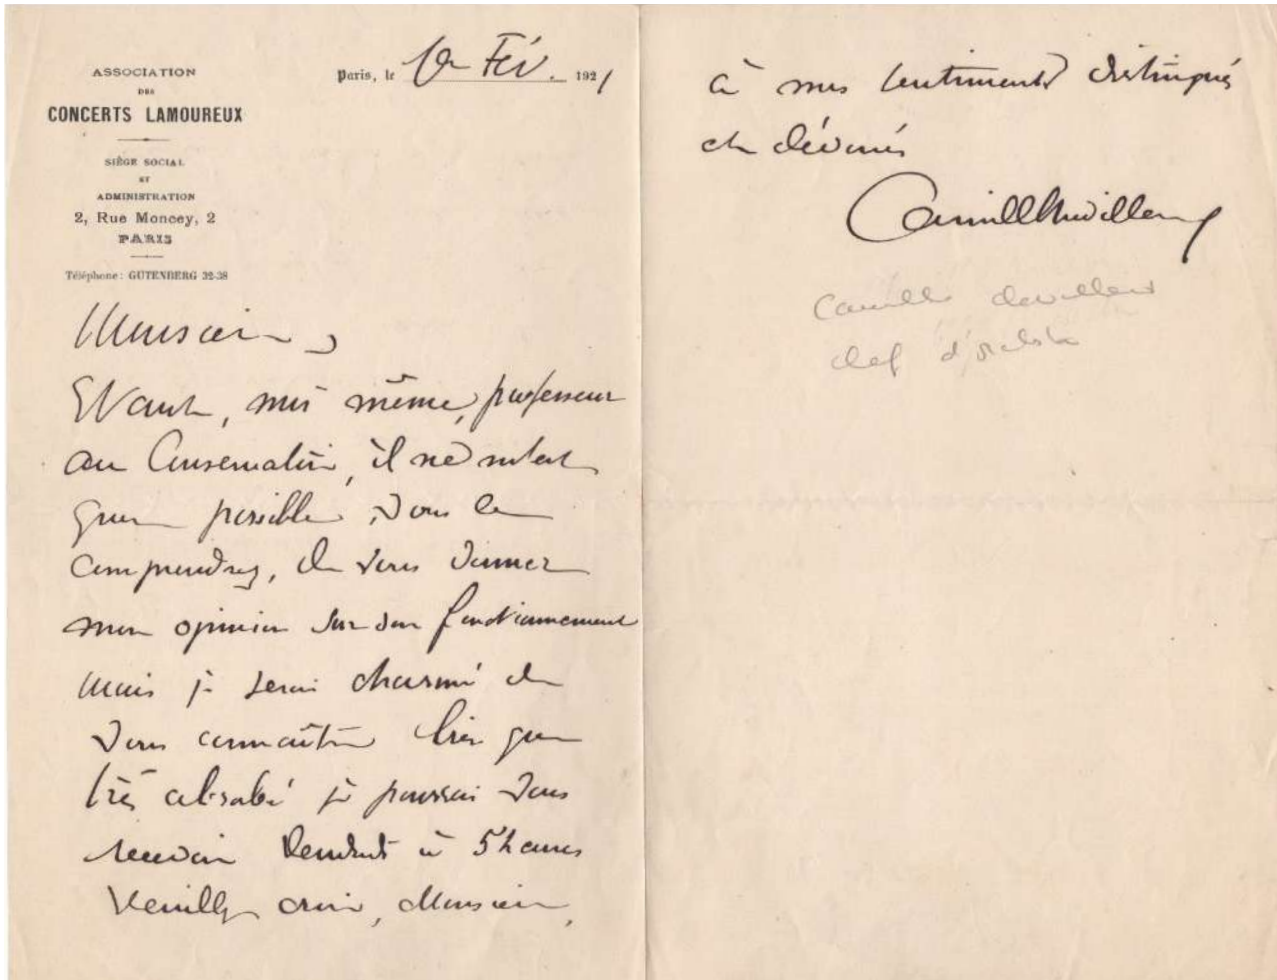 ASSOCIATION
DES
CONCERTS LAMOUREUX
SIÈGE SOCIAL
ET
ADMINISTRATION
2, Rue Moncey, 2
PARIS
Téléphone : GUTENBERG 32-38
Paris, le 1er Fév. 1921
Monsieur,
Étant, moi même, professeur
au Conservatoire, il ne m'est
guère possible, vous le
comprendrez, de vous donner
mon opinion sur son fonctionnement
mais je serai charmé de
vous connaître bien que
très absorbé je pourrai vous
recevoir Vendredi à 5 heures
Veuillez croire, Monsieur,
à mes sentiments distingués
et dévoués
Camille Chevillard
Camille Chevillard
chef d'orchestre